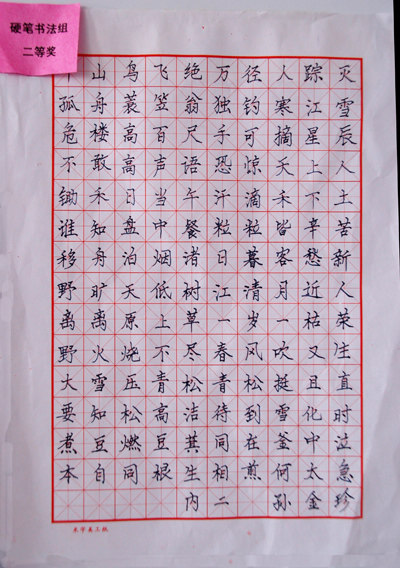 硬笔书法组
二等奖
山鸟飞绝万径人踪灭
孤舟蓑笠翁独钓寒江雪
危楼高百尺手可摘星辰
不敢高声语恐惊天上人
锄禾日当午汗滴禾下土
谁知盘中餐粒粒皆辛苦
移舟泊烟渚日暮客愁新
野旷天低树江清月近人
离离原上草一岁一枯荣
野火烧不尽春风吹又生
大雪压青松青松挺且直
要知松高洁待到雪化时
煮豆燃豆萁同在釜中泣
本自同根生相煎何太急
内二 孙金珍